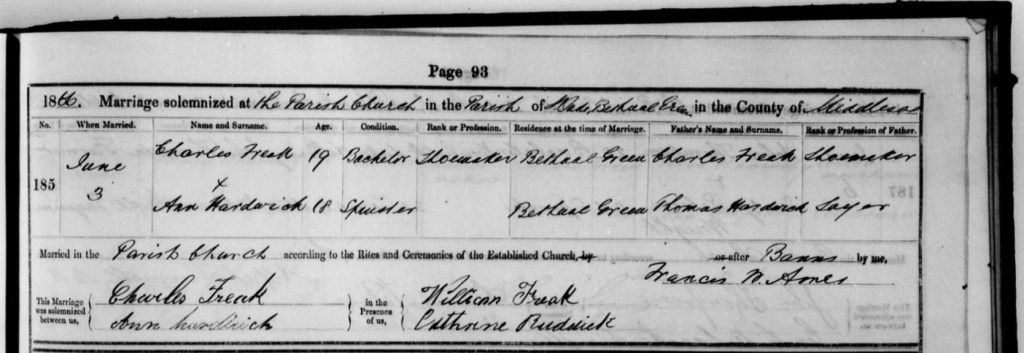 Page 93
1866. Marriage solemnized at the Parish Church in the Parish of St Jude Bethnal Green in the County of Middlesex
No. When Married. Name and Surname. Age. Condition. Rank or Profession. Residence at the time of Marriage. Father's Name and Surname. Rank or Profession of Father.
185 June 3 Charles Freak 19 Bachelor Shoemaker Bethnal Green Charles Freak Shoemaker
Ann Hardwick 18 Spinster Bethnal Green Thomas Hardwick Sayer
Married in the Parish Church according to the Rites and Ceremonies of the Established Church, by or after Banns by me,
Francis W. Ames
This Marriage was solemnized between us, Charles Freak in the Presence of us, William Freak
Ann hardwick Cathrine Ruddick